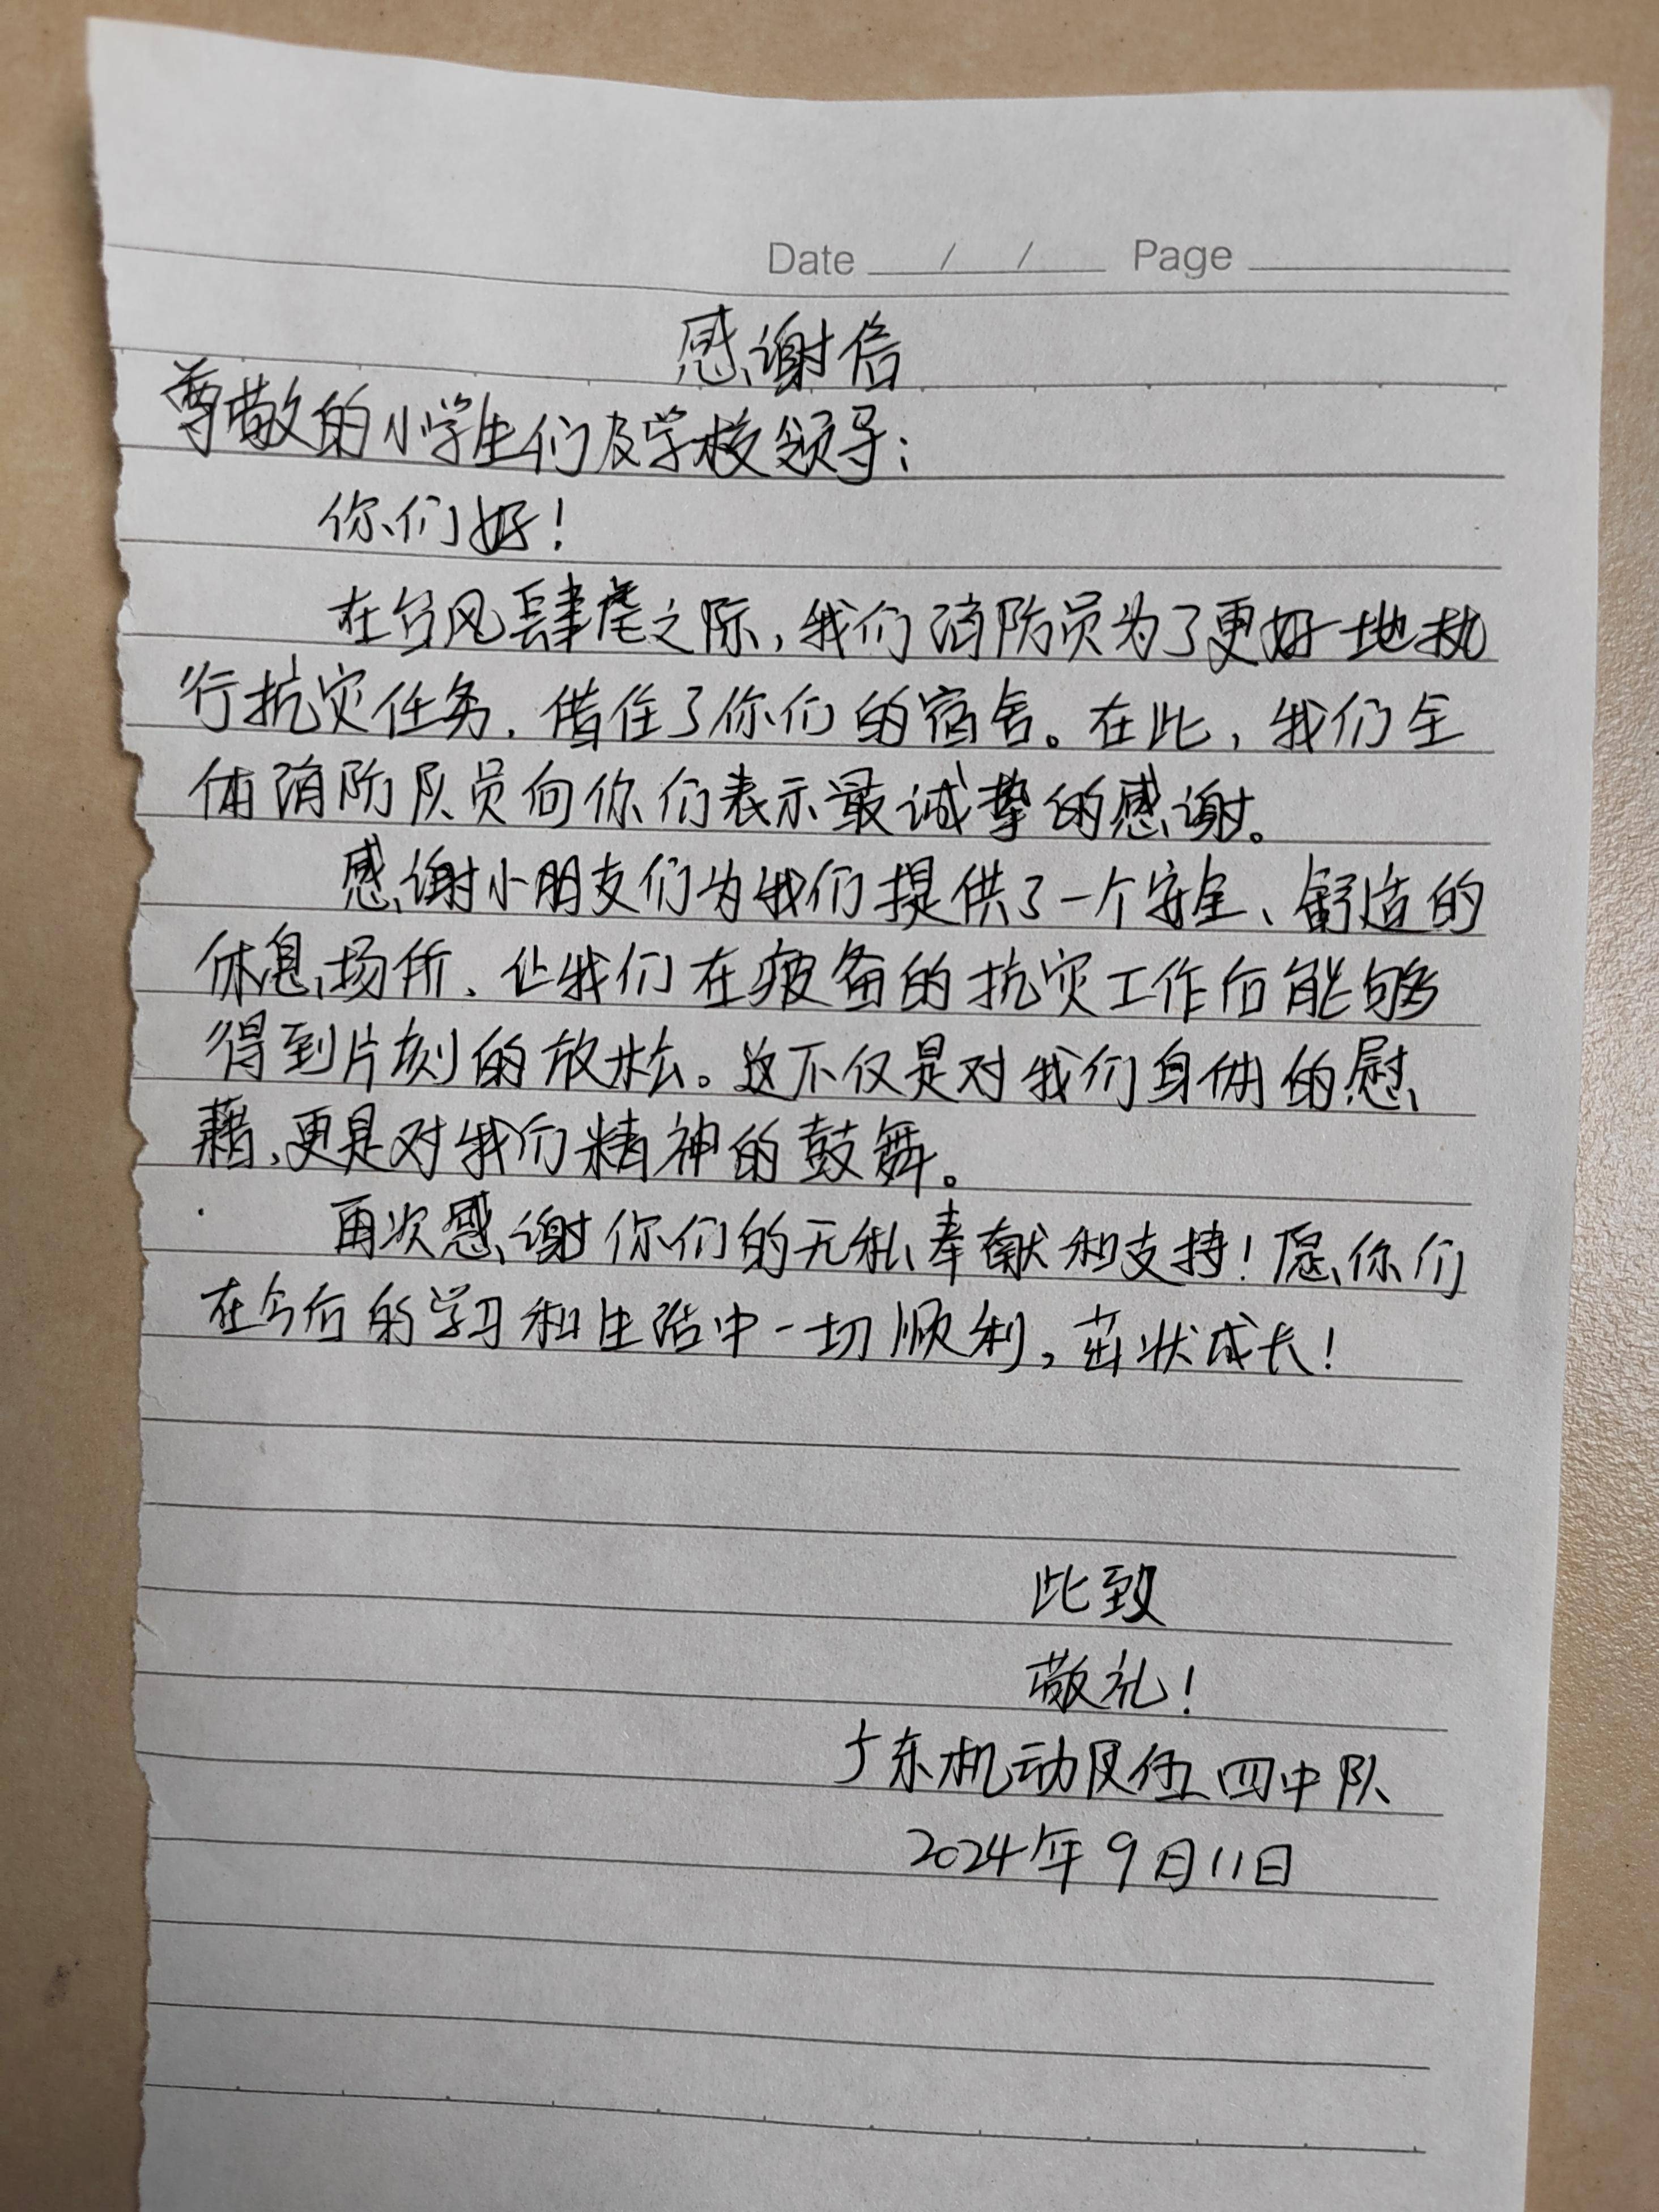 Date / / Page
感谢信
尊敬的小学生们及学校领导：
你们好！
在台风肆虐之际，我们消防员为了更好地执
行抗灾任务，借住了你们的宿舍。在此，我们全
体消防队员向你们表示最诚挚的感谢。
感谢小朋友们为我们提供了一个安全、舒适的
休息场所、让我们在疲备的抗灾工作后能够
得到片刻的放松。这不仅是对我们身体的慰
藉，更是对我们精神的鼓舞。
再次感谢你们的无私奉献和支持！愿你们
在今后的学习和生活中一切顺利，茁状成长！
此致
敬礼！
广东机动队伍四中队
2024年9月11日